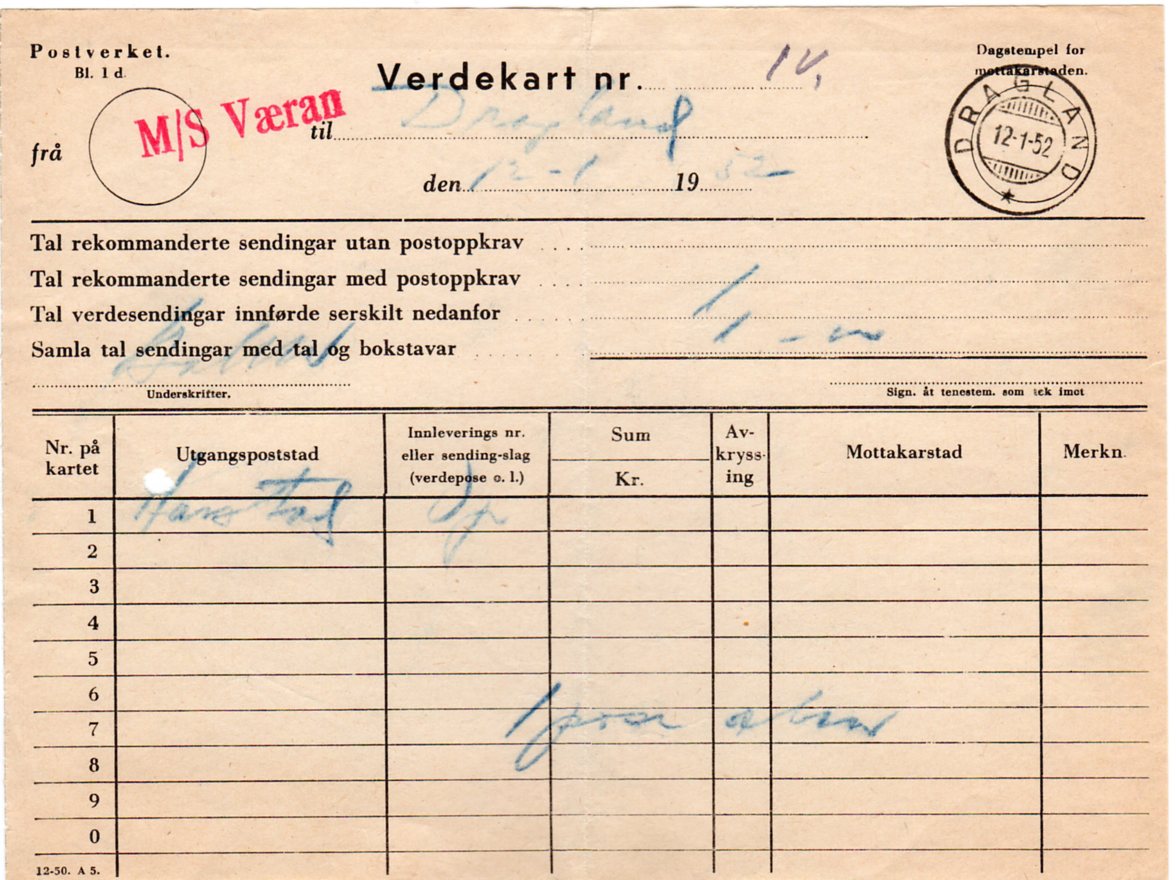 Postverket.
Bl. 1 d.
Verdekart nr. IV,
Dagstempel for
mottakarstaden.
DRAGLAND
12-1-52
frå
M/S Væran
til Dragland
den 12-1 1952
Tal rekommanderte sendingar utan postoppkrav
Tal rekommanderte sendingar med postoppkrav
Tal verdesendingar innførde serskilt nedanfor 1
Samla tal sendingar med tal og bokstavar 1 - en
Underskrifter.
Sign. åt tenestem. som tek imot
Nr. på kartet
Utgangspoststad
Innleverings nr. eller sending-slag (verdepose o. l.)
Sum
Kr.
Av-kryss-ing
Mottakarstad
Merkn.
1 Harstad Vp
2
3
4
5
6
7 1 pose
8
9
0
12-50. A 5.